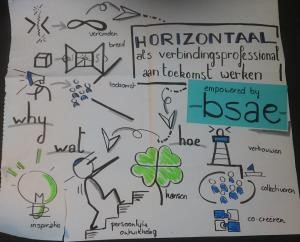 HORIZONTAAL
als verbindingsprofessional
aan toekomst werken!
empowered by
-bsae-
verbinden
breed
toekomst
why
wat
hoe
vertrouwen
collectiveren
co-creëren
kansen
persoonlijke
ontwikkeling
inspiratie